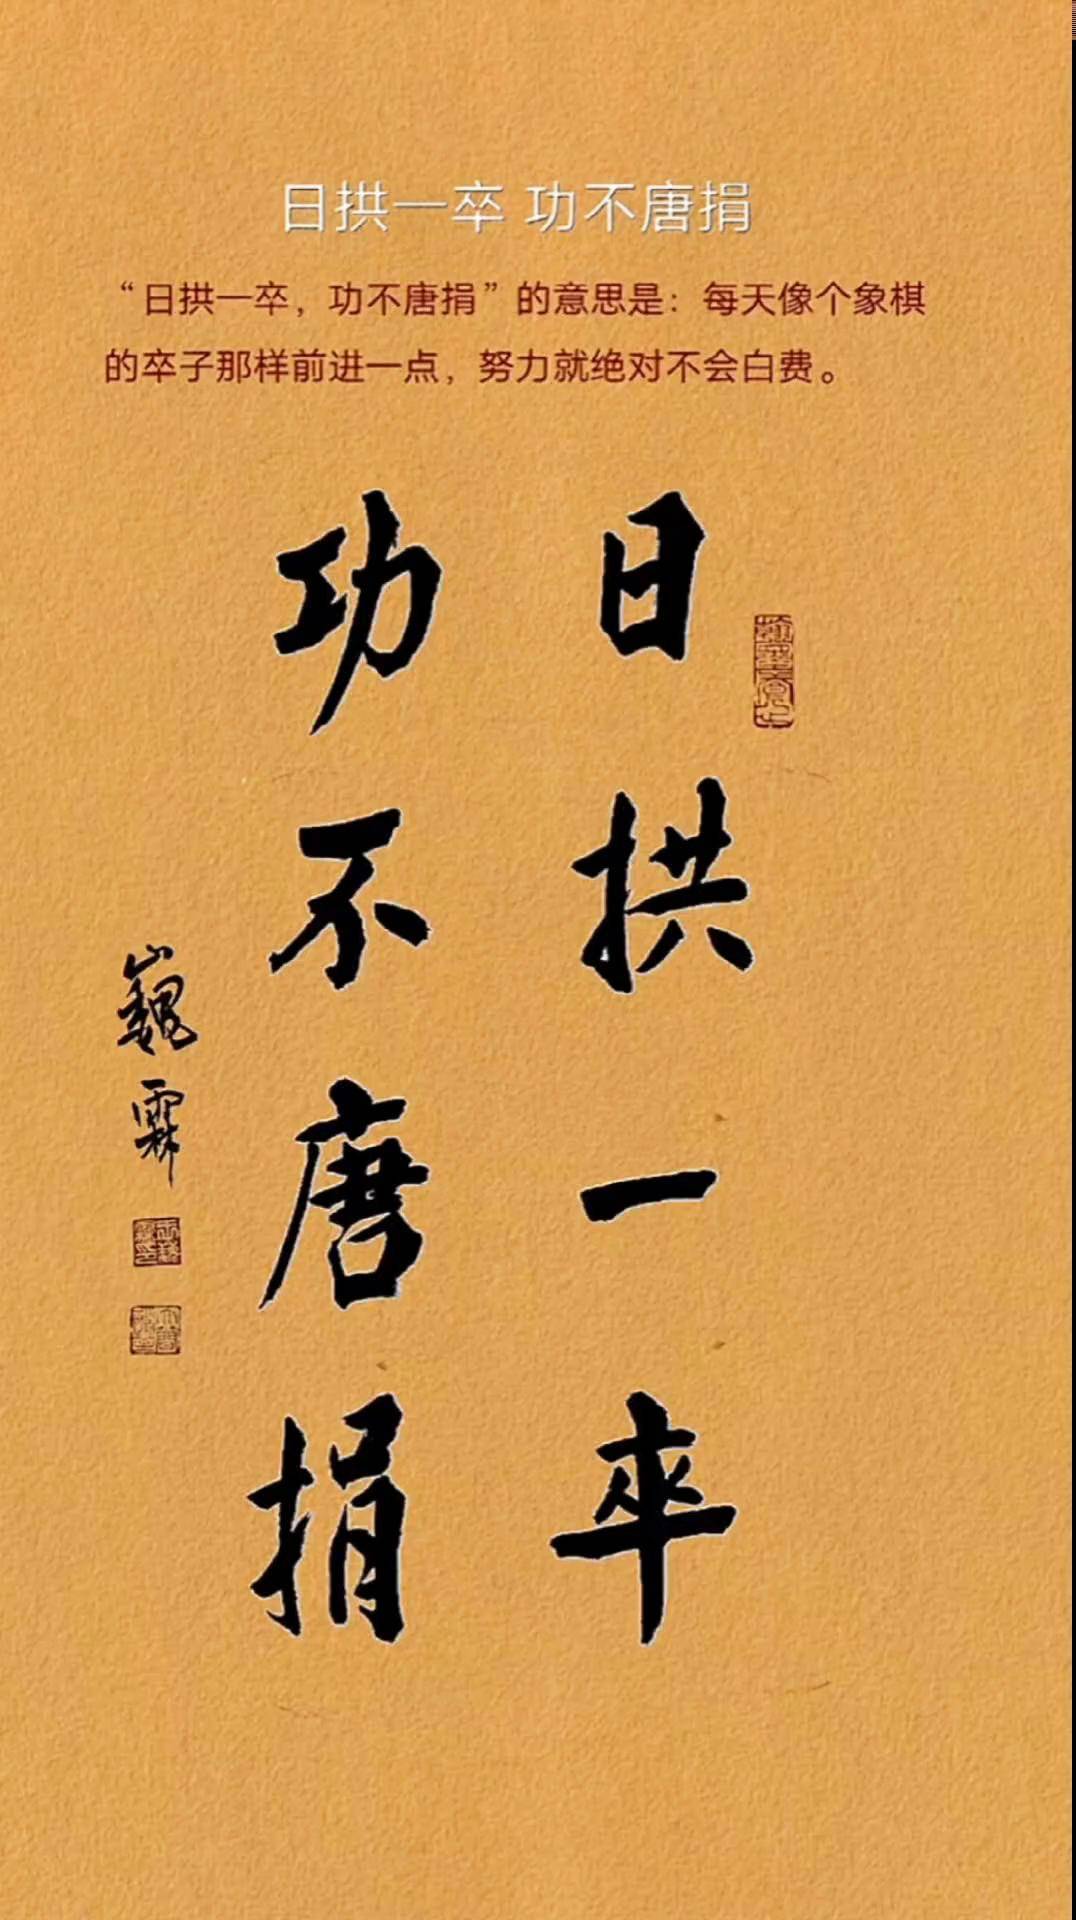 日拱一卒 功不唐捐
“日拱一卒，功不唐捐”的意思是：每天像个象棋
的卒子那样前进一点，努力就绝对不会白费。
日拱一卒
功不唐捐
巍霖